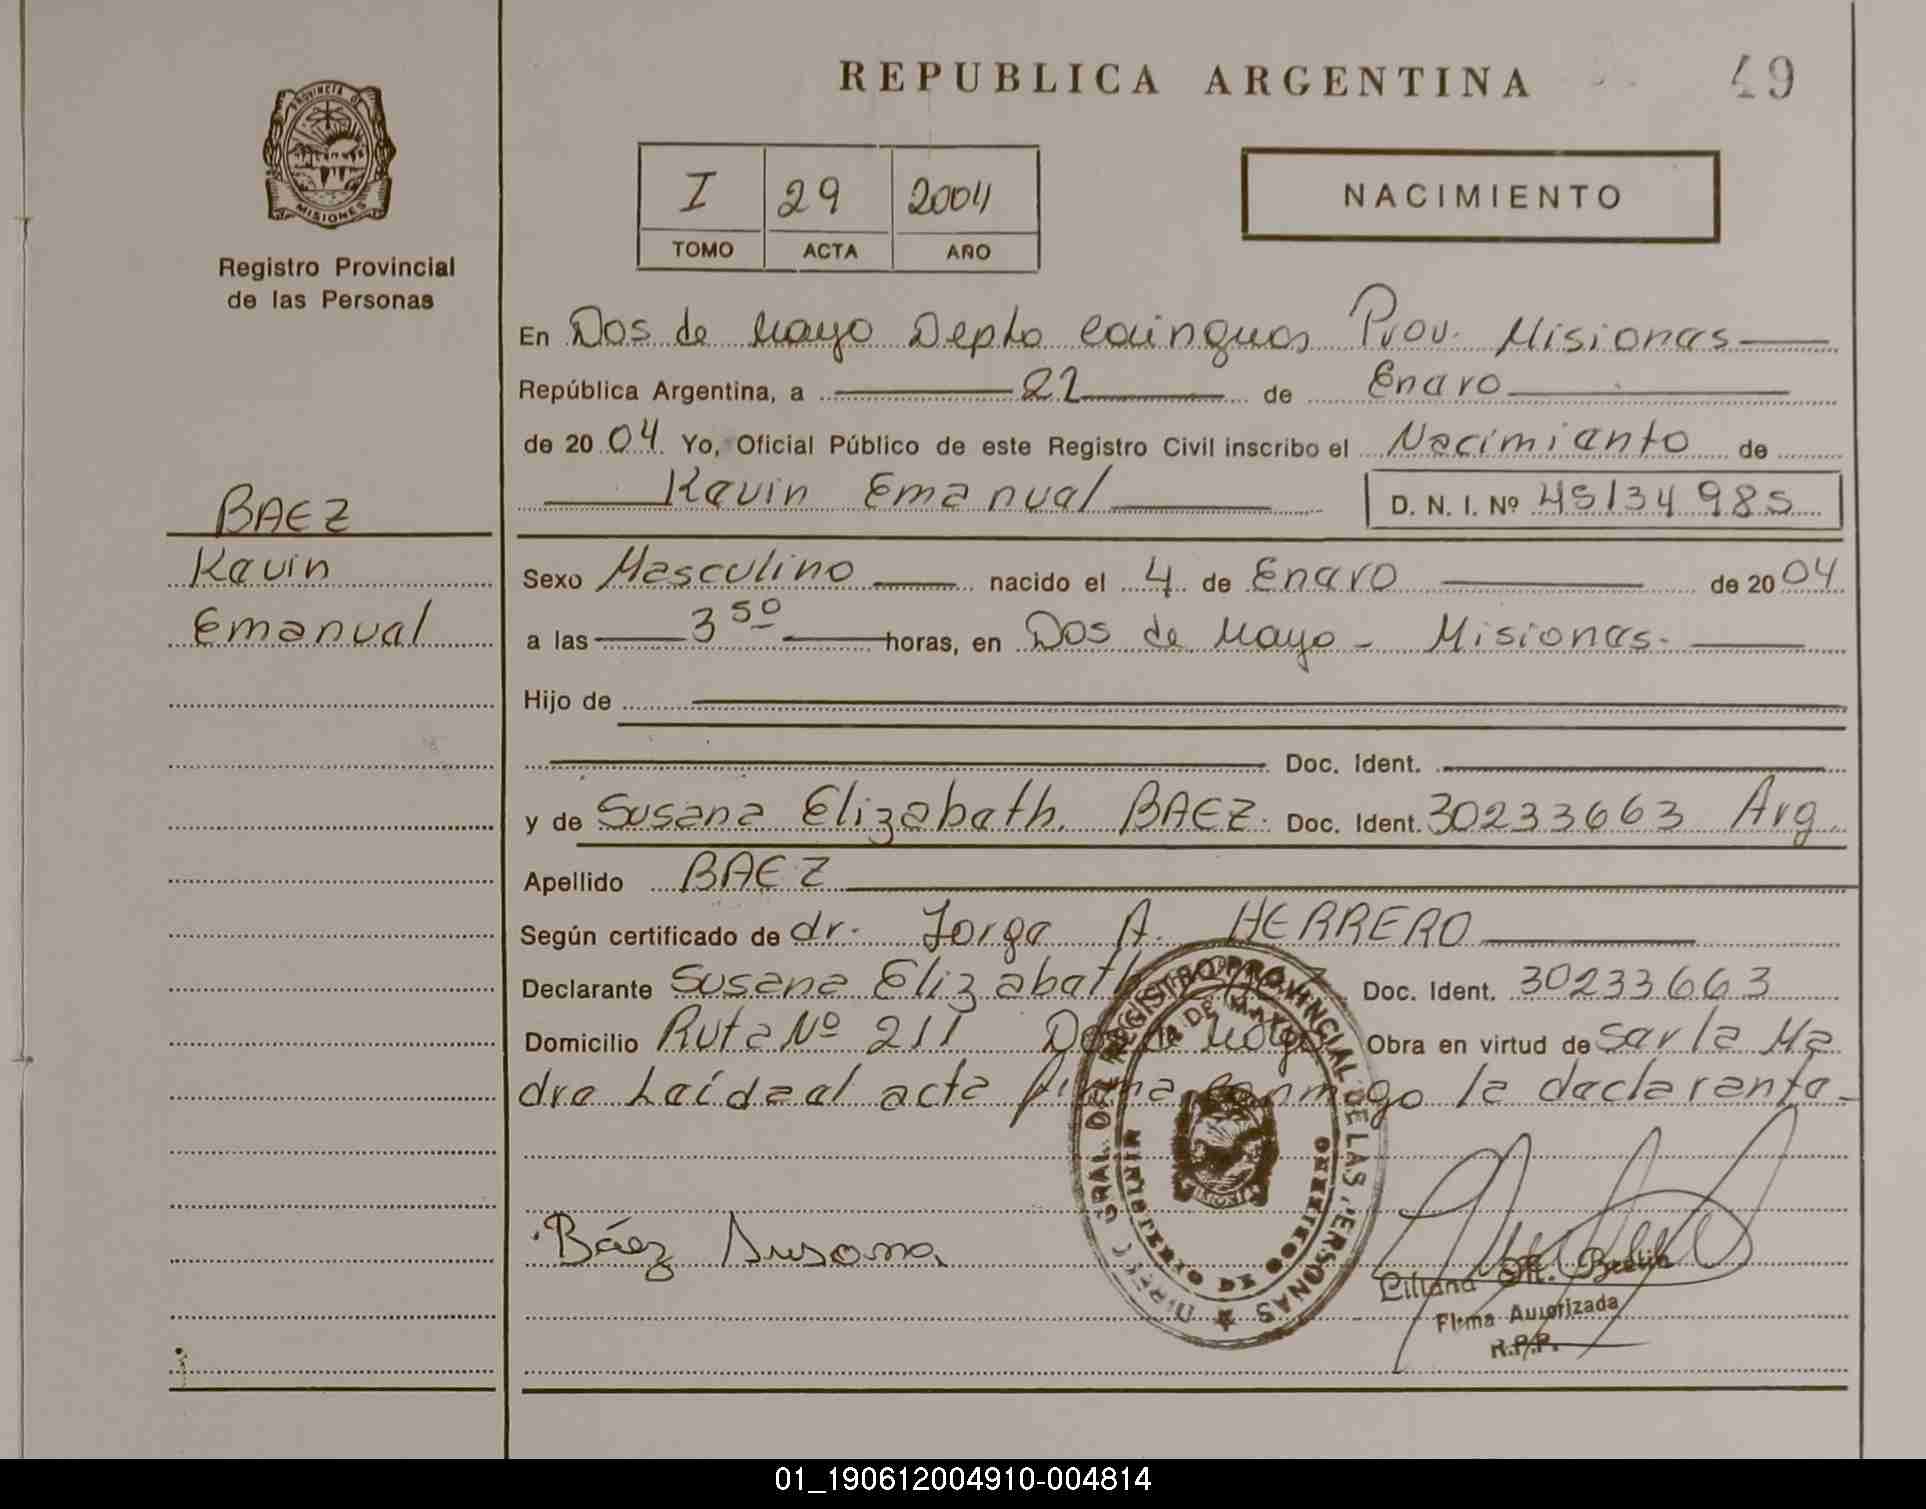 REPUBLICA ARGENTINA
49
PROVINCIA DE
MISIONES
Registro Provincial
de las Personas
I 29 2004
TOMO ACTA AÑO
NACIMIENTO
En Dos de Mayo Depto Cainguas Prov. Misiones
República Argentina, a 22 de Enero
de 2004 Yo, Oficial Público de este Registro Civil inscribo el Nacimiento de
Kevin Emanuel D. N. I. Nº 45134985
BAEZ
Kevin
Emanuel
Sexo Masculino nacido el 4 de Enero de 2004
a las 3 50 horas, en Dos de Mayo - Misiones.
Hijo de
Doc. Ident.
y de Susana Elizabeth BAEZ. Doc. Ident. 30233663 Arg.
Apellido BAEZ
Según certificado de dr. Jorge A. HERRERO
Declarante Susana Elizabeth Doc. Ident. 30233663
Domicilio Ruta Nº 211 Dos de Mayo Obra en virtud de ser la Ma
dre Leída el acta firma conmigo la declarante -
DIREC. GRAL. DEL REGISTRO PROVINCIAL DE LAS PERSONAS
MINISTERIO DE GOBIERNO
Báez Susana
Liliana
Firma Autorizada
R.P.P.
01_190612004910-004814